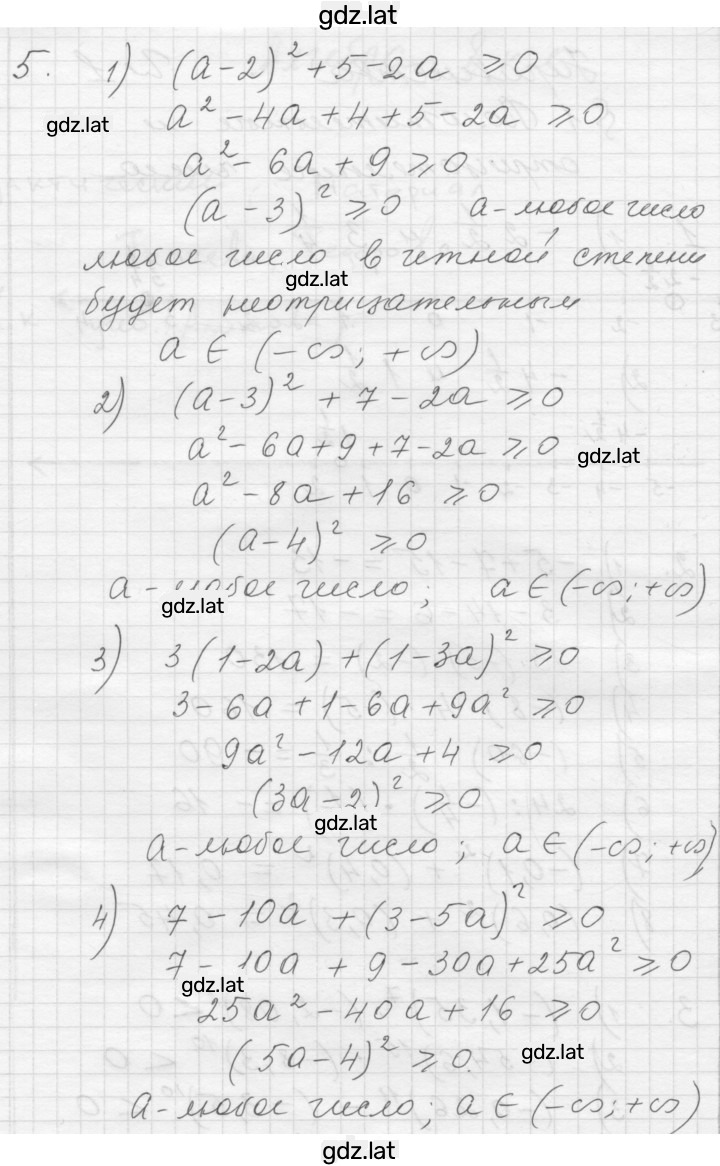 gdz.lat
5. 1) (a-2)² + 5 - 2a ⩾ 0
a² - 4a + 4 + 5 - 2a ⩾ 0
gdz.lat
a² - 6a + 9 ⩾ 0
(a - 3)² ⩾ 0 a - любое число,
любое число в четной степени
gdz.lat
будет неотрицательным
a ∈ (-∞; +∞)
2) (a-3)² + 7 - 2a ⩾ 0
a² - 6a + 9 + 7 - 2a ⩾ 0
gdz.lat
a² - 8a + 16 ⩾ 0
(a-4)² ⩾ 0
a - любое число; a ∈ (-∞; +∞)
gdz.lat
3) 3(1-2a) + (1-3a)² ⩾ 0
3 - 6a + 1 - 6a + 9a² ⩾ 0
9a² - 12a + 4 ⩾ 0
(3a - 2)² ⩾ 0
gdz.lat
a - любое число; a ∈ (-∞; +∞)
4) 7 - 10a + (3-5a)² ⩾ 0
7 - 10a + 9 - 30a + 25a² ⩾ 0
gdz.lat
25a² - 40a + 16 ⩾ 0
(5a-4)² ⩾ 0.
gdz.lat
a - любое число; a ∈ (-∞; +∞)
gdz.lat